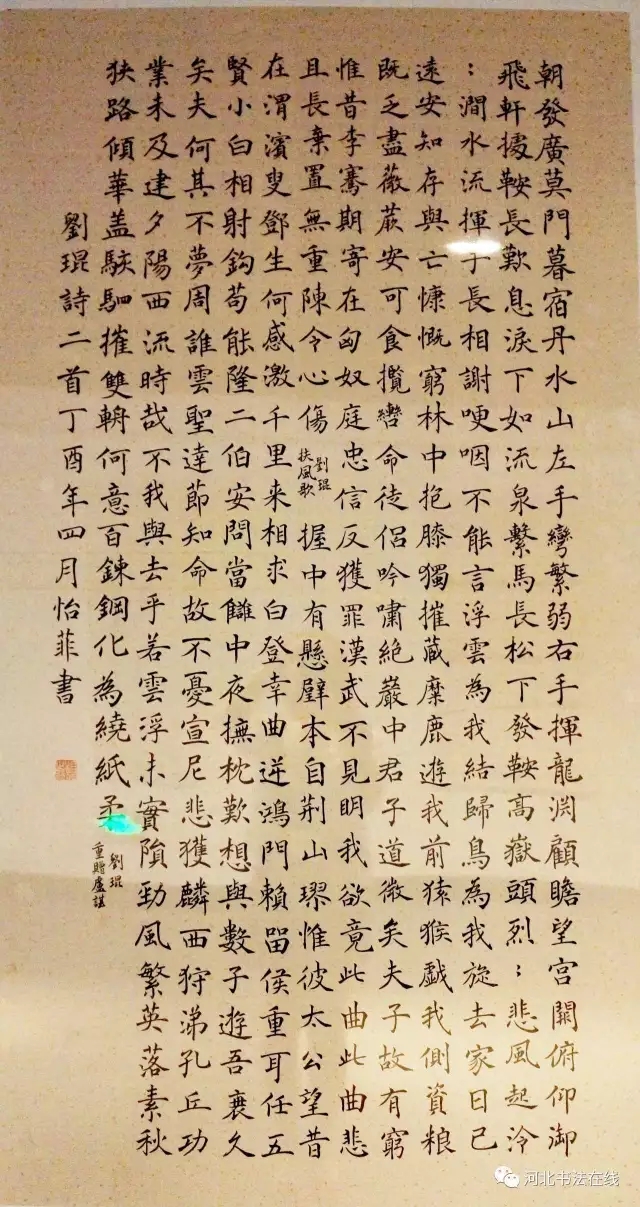 朝發廣莫門暮宿丹水山左手彎繁弱右手揮龍淵顧瞻望宮闕俯仰御
飛軒據鞍長歎息淚下如流泉繫馬長松下發鞍高嶽頭烈：悲風起泠
：澗水流揮手長相謝哽咽不能言浮雲為我結歸鳥為我旋去家日已
遠安知存與亡慷慨窮林中抱膝獨摧藏麋鹿遊我前猿猴戲我側資粮
既乏盡薇蕨安可食攬轡命徒侶吟嘯絕巖中君子道微矣夫子故有窮
惟昔李騫期寄在匈奴庭忠信反獲罪漢武不見明我欲竟此曲此曲悲
且長棄置無重陳令心傷 劉琨 扶風歌 握中有懸璧本自荊山璆惟彼太公望昔
在渭濱叟鄧生何感激千里来相求白登幸曲逆鴻門賴留侯重耳任五
賢小白相射鈎苟能隆二伯安問當讎中夜撫枕歎想與數子遊吾衰久
矣夫何其不夢周誰雲聖達節知命故不憂宣尼悲獲麟西狩涕孔丘功
業未及建夕陽西流時哉不我與去乎若雲浮未實隕勁風繁英落素秋
狭路傾華盖駭駟摧雙輈何意百鍊鋼化為繞紙柔 劉琨 重贈盧諶
劉琨詩二首丁酉年四月怡菲書
河北书法在线